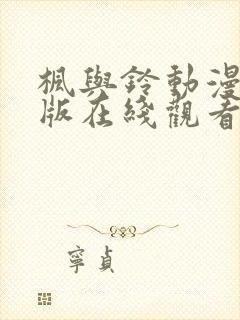 楓與鈴動漫
版在綫觀看
寧貞